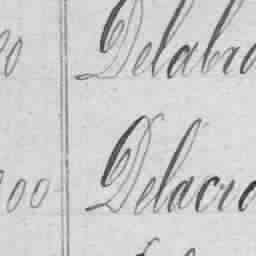 00 Delabro
00 Delacro